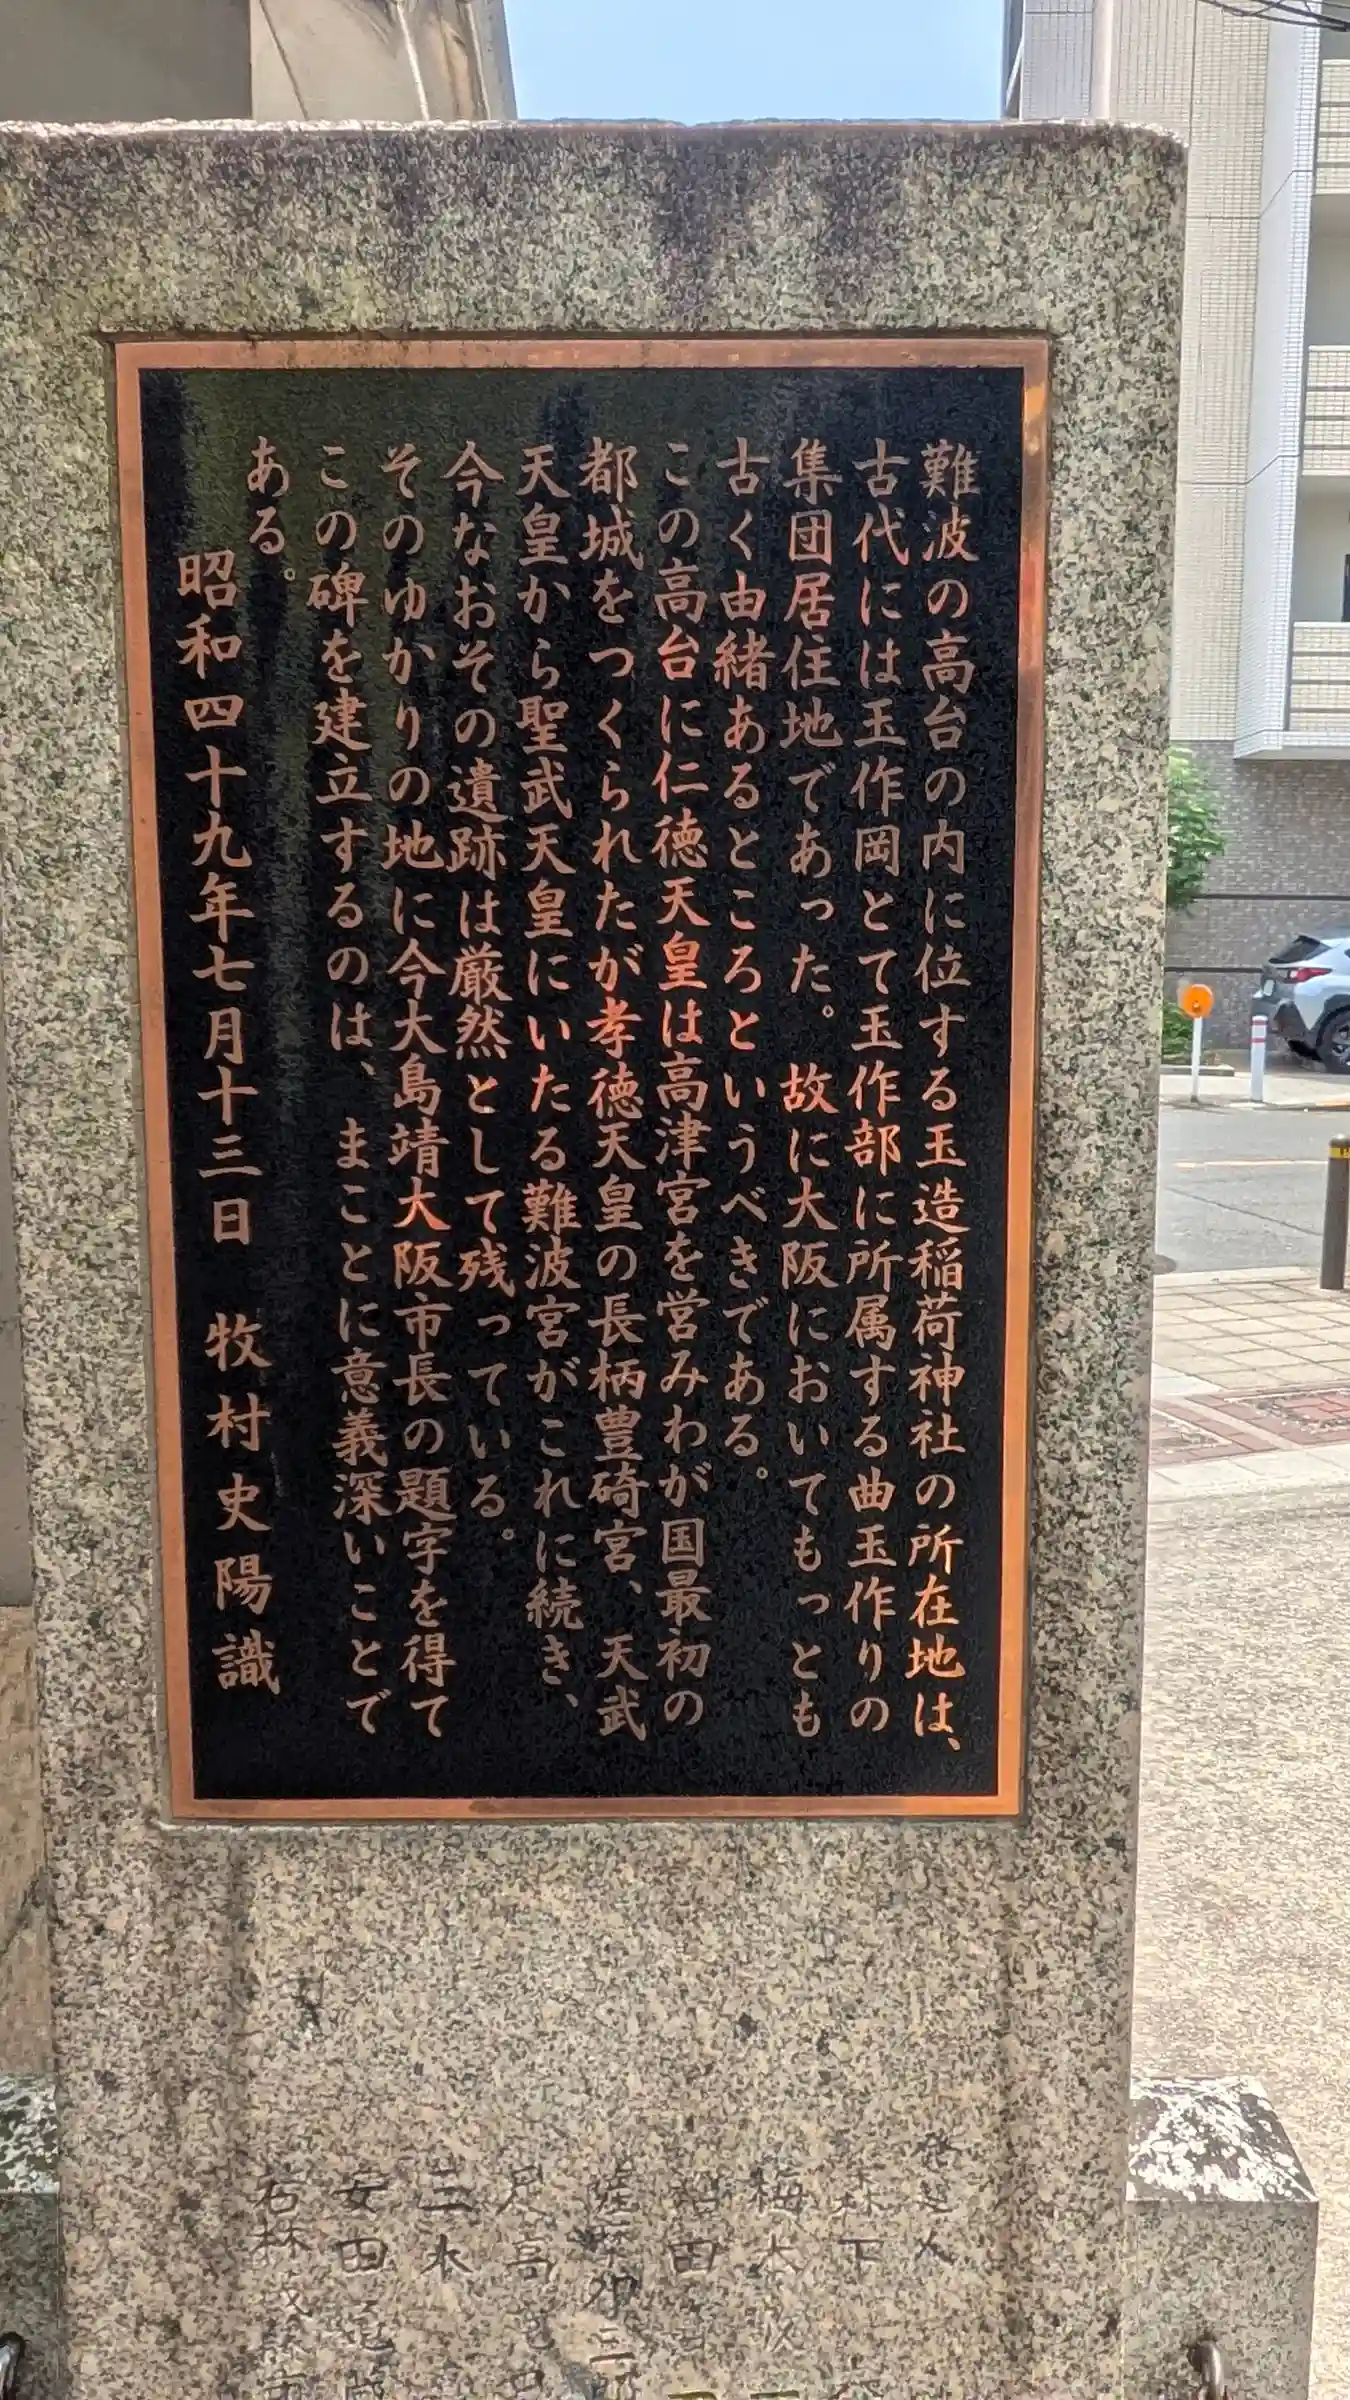 難波の高台の内に位する玉造稲荷神社の所在地は、
古代には玉作岡とて玉作部に所属する曲玉作りの
集団居住地であった。故に大阪においてもっとも
古く由緒あるところというべきである。
この高台に仁徳天皇は高津宮を営みわが国最初の
都城をつくられたが孝徳天皇の長柄豊碕宮、天武
天皇から聖武天皇にいたる難波宮がこれに続き、
今なおその遺跡は厳然として残っている。
そのゆかりの地に今大島靖大阪市長の題字を得て
この碑を建立するのは、まことに意義深いことで
ある。
昭和四十九年七月十三日 牧村史陽識
発起人
森下
梅本
田
佐々木卯三郎
尺高
三木
安田
若林